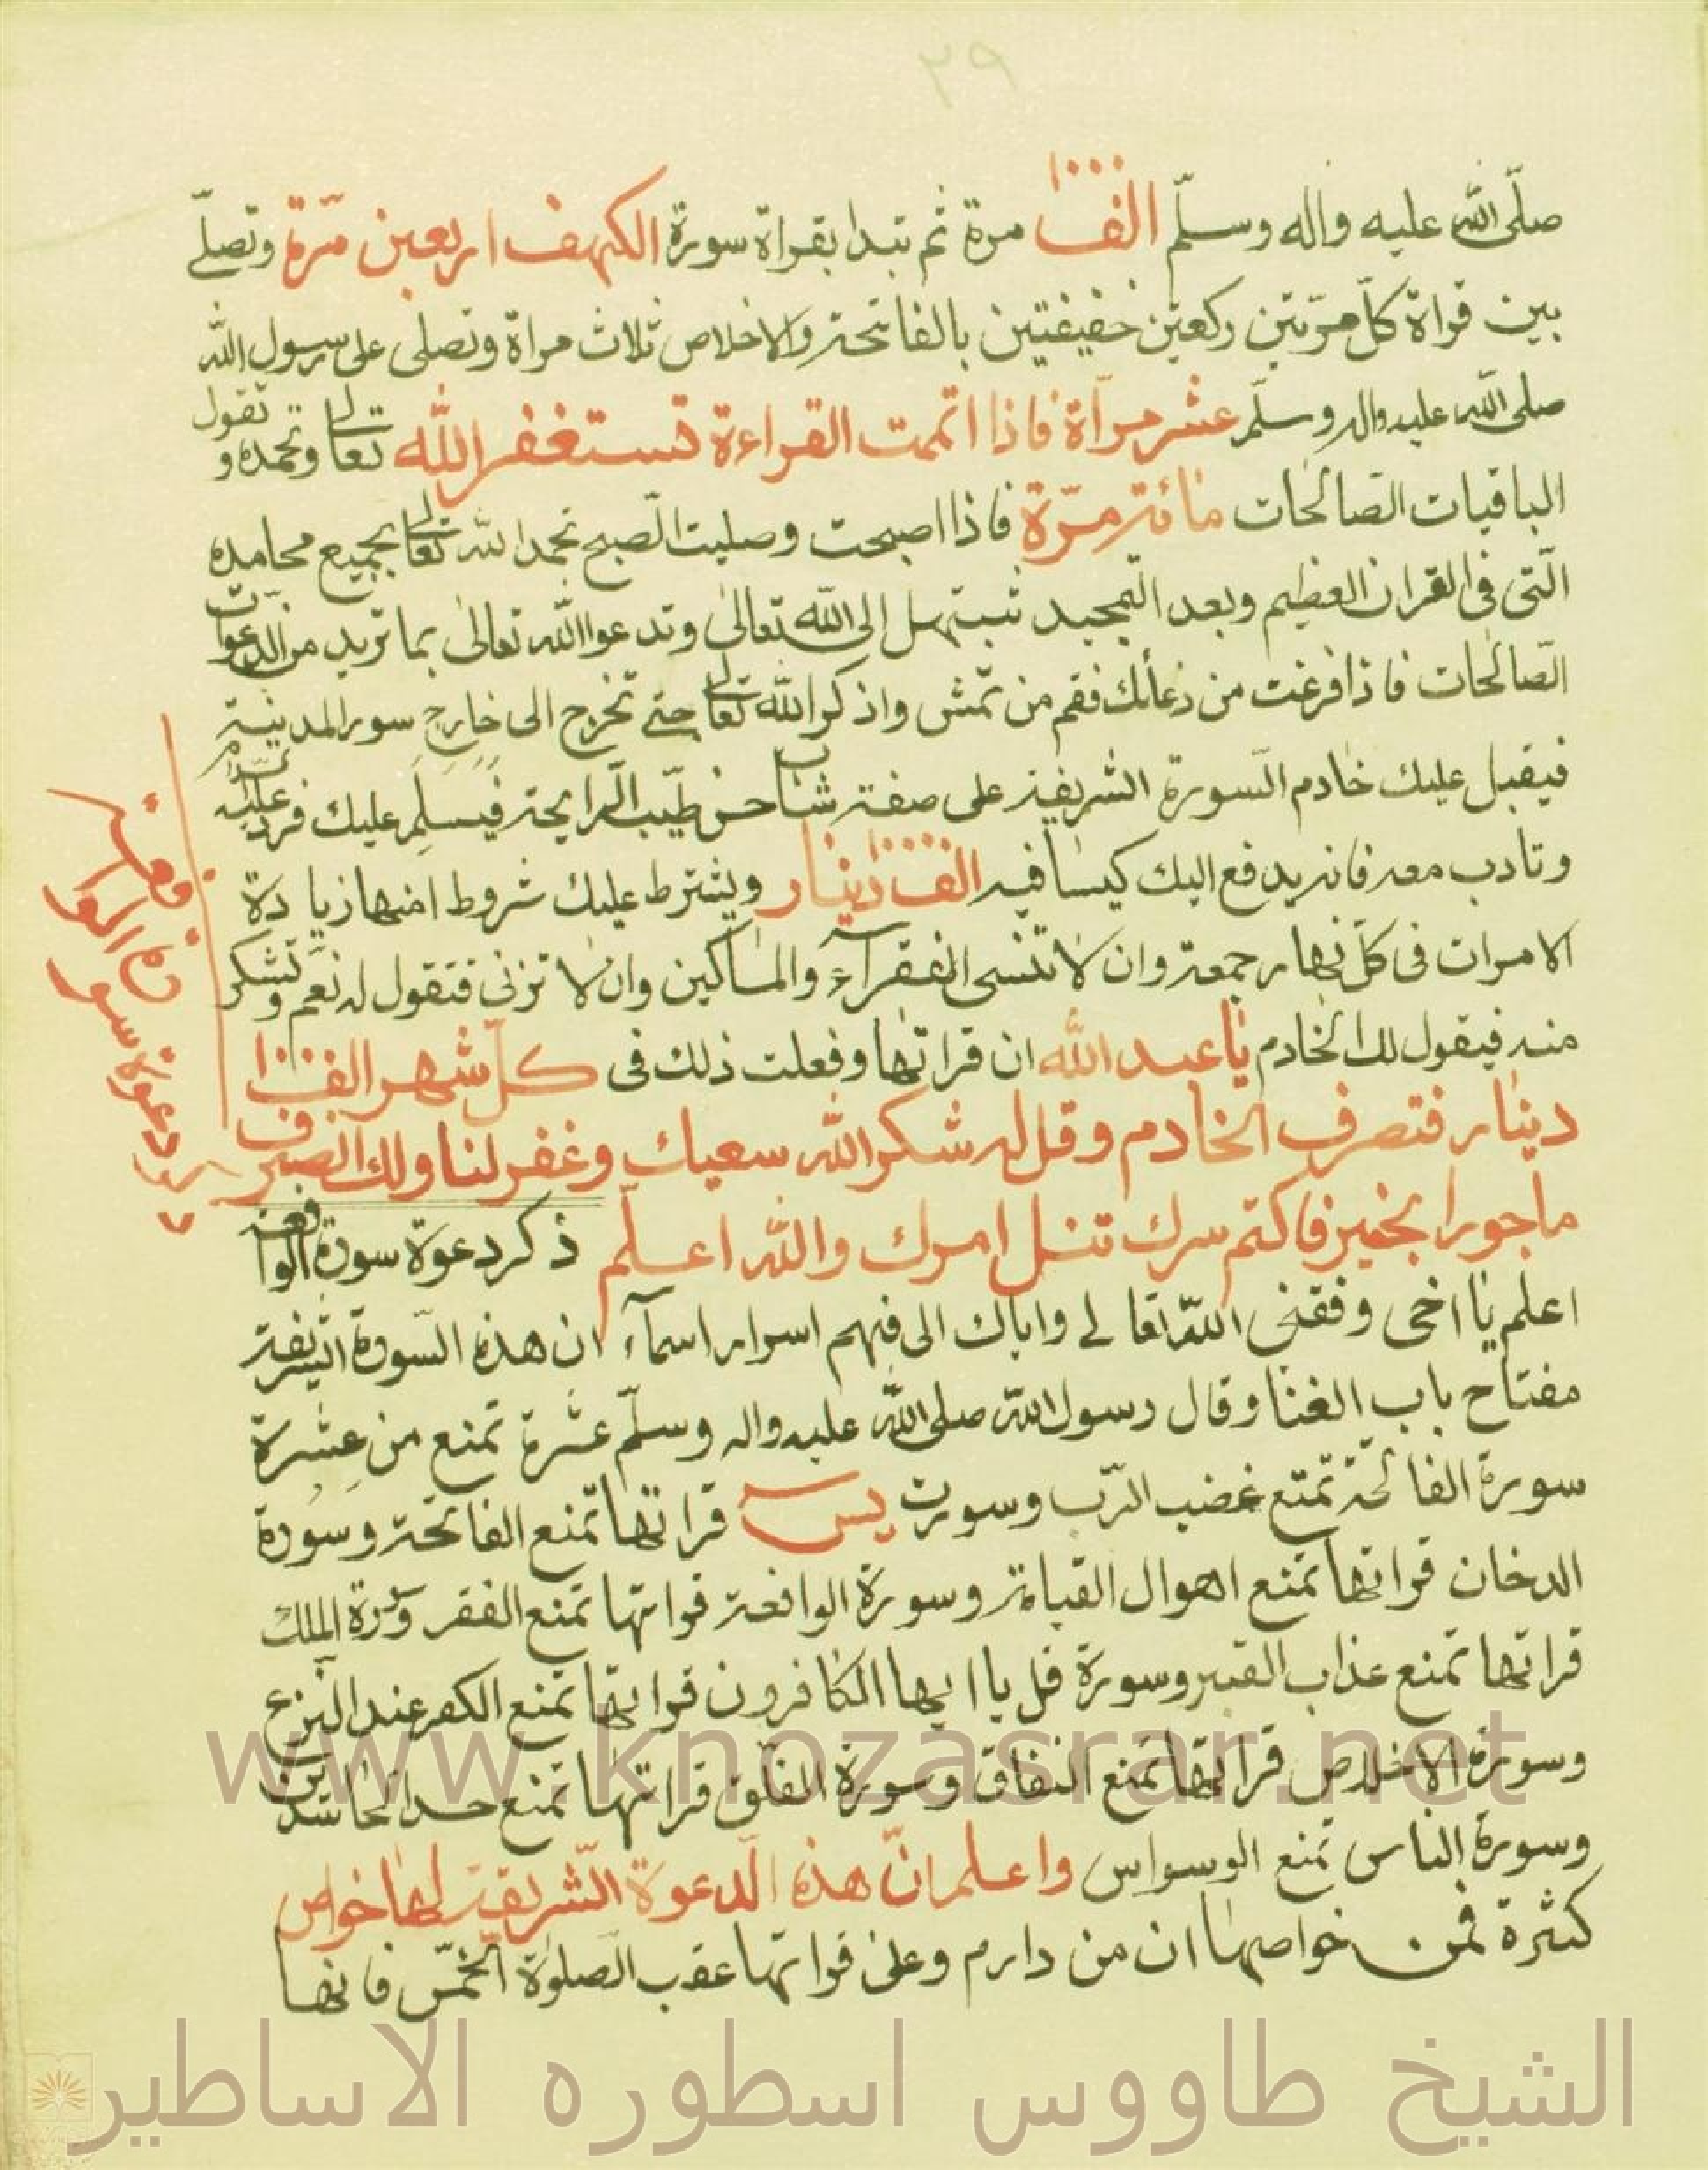 ٣٩
صلّى الله عليه واله وسلّم الفا مرة ثم تبدا بقراة سورة الكهف اربعين مرّة وتصلّي
بين قراة كلّ مرّتين ركعتين خفيفتين بالفاتحة والاخلاص ثلاث مراة وتصلى على رسول الله
صلى الله عليه واله وسلّم عشر مرآة فاذا اتممت القراءة تستغفر الله تعالى وتحمده وتقول
الباقيات الصّالحات مائة مرّة فاذا اصبحت وصليت الصبح تحمد الله تعالى بجميع محامده
الّتى فى القران العظيم وبعد التمجيد تبتهل الى الله تعالى وتدعوا الله تعالى بما تريد من الدعوات
الصّالحات فاذا فرغت من دعائك فقم من تمش واذكر الله تعالى حتى تخرج الى خارج سور المدينة
فيقبل عليك خادم السّورة الشريفة على صفة شاب حسن طيّب الرايحة فيسلم عليك فرد عليه
وتادب معه فانه يدفع اليك كيسا فيه الف دينار ويشترط عليك شروط امنها زيادة
الامرات فى كلّ نهار جمعة وان لا تنسى الفقرآء والمساكين وان لا تزنى فتقول له نعم وتشكر
منه فيقول لك الخادم يا عبد الله ان قراتها وفعلت ذلك فى كلّ شهر الف
دينار فتصرف الخادم وقل له شكر الله سعيك وغفر لنا ولك انصرف
ماجورا بخير فاكتم سرك تنل امرك والله اعلم ذكر دعوة سورة الواقعة
اعلم يا اخى وفقنى الله تعالى واياك الى فهم اسرار اسمآء ان هذه السّورة الشريفة
مفتاح باب الغنا وقال رسول الله صلى الله عليه واله وسلّم عشرة تمنع من عشرة
سورة الفاتحة تمتع غضب الرّب وسورت يس قراتها تمنع الفاتحة وسورة
الدخان قراتها تمنع اهوال القيامة وسورة الواقعة قراتها تمنع الفقر وسورة الملك
قراتها تمنع عذاب القبر وسورة قل يا ايها الكافرون قراتها تمنع الكفر عند النزع
وسورة الاخلاص قراتها تمنع النفاق وسورة الفلق قراتها تمنع حسد الحاسدين
وسورة الناس تمنع الوسواس واعلم انّ هذه الدعوة الشّريفة لها خواص
كثيرة فمن خواصها ان من دارم وعلى قراتها عقب الصلوة الخمس فانها
دعوة سورة الواقعة
www.knozasrar.net
الشيخ طاووس اسطوره الاساطير